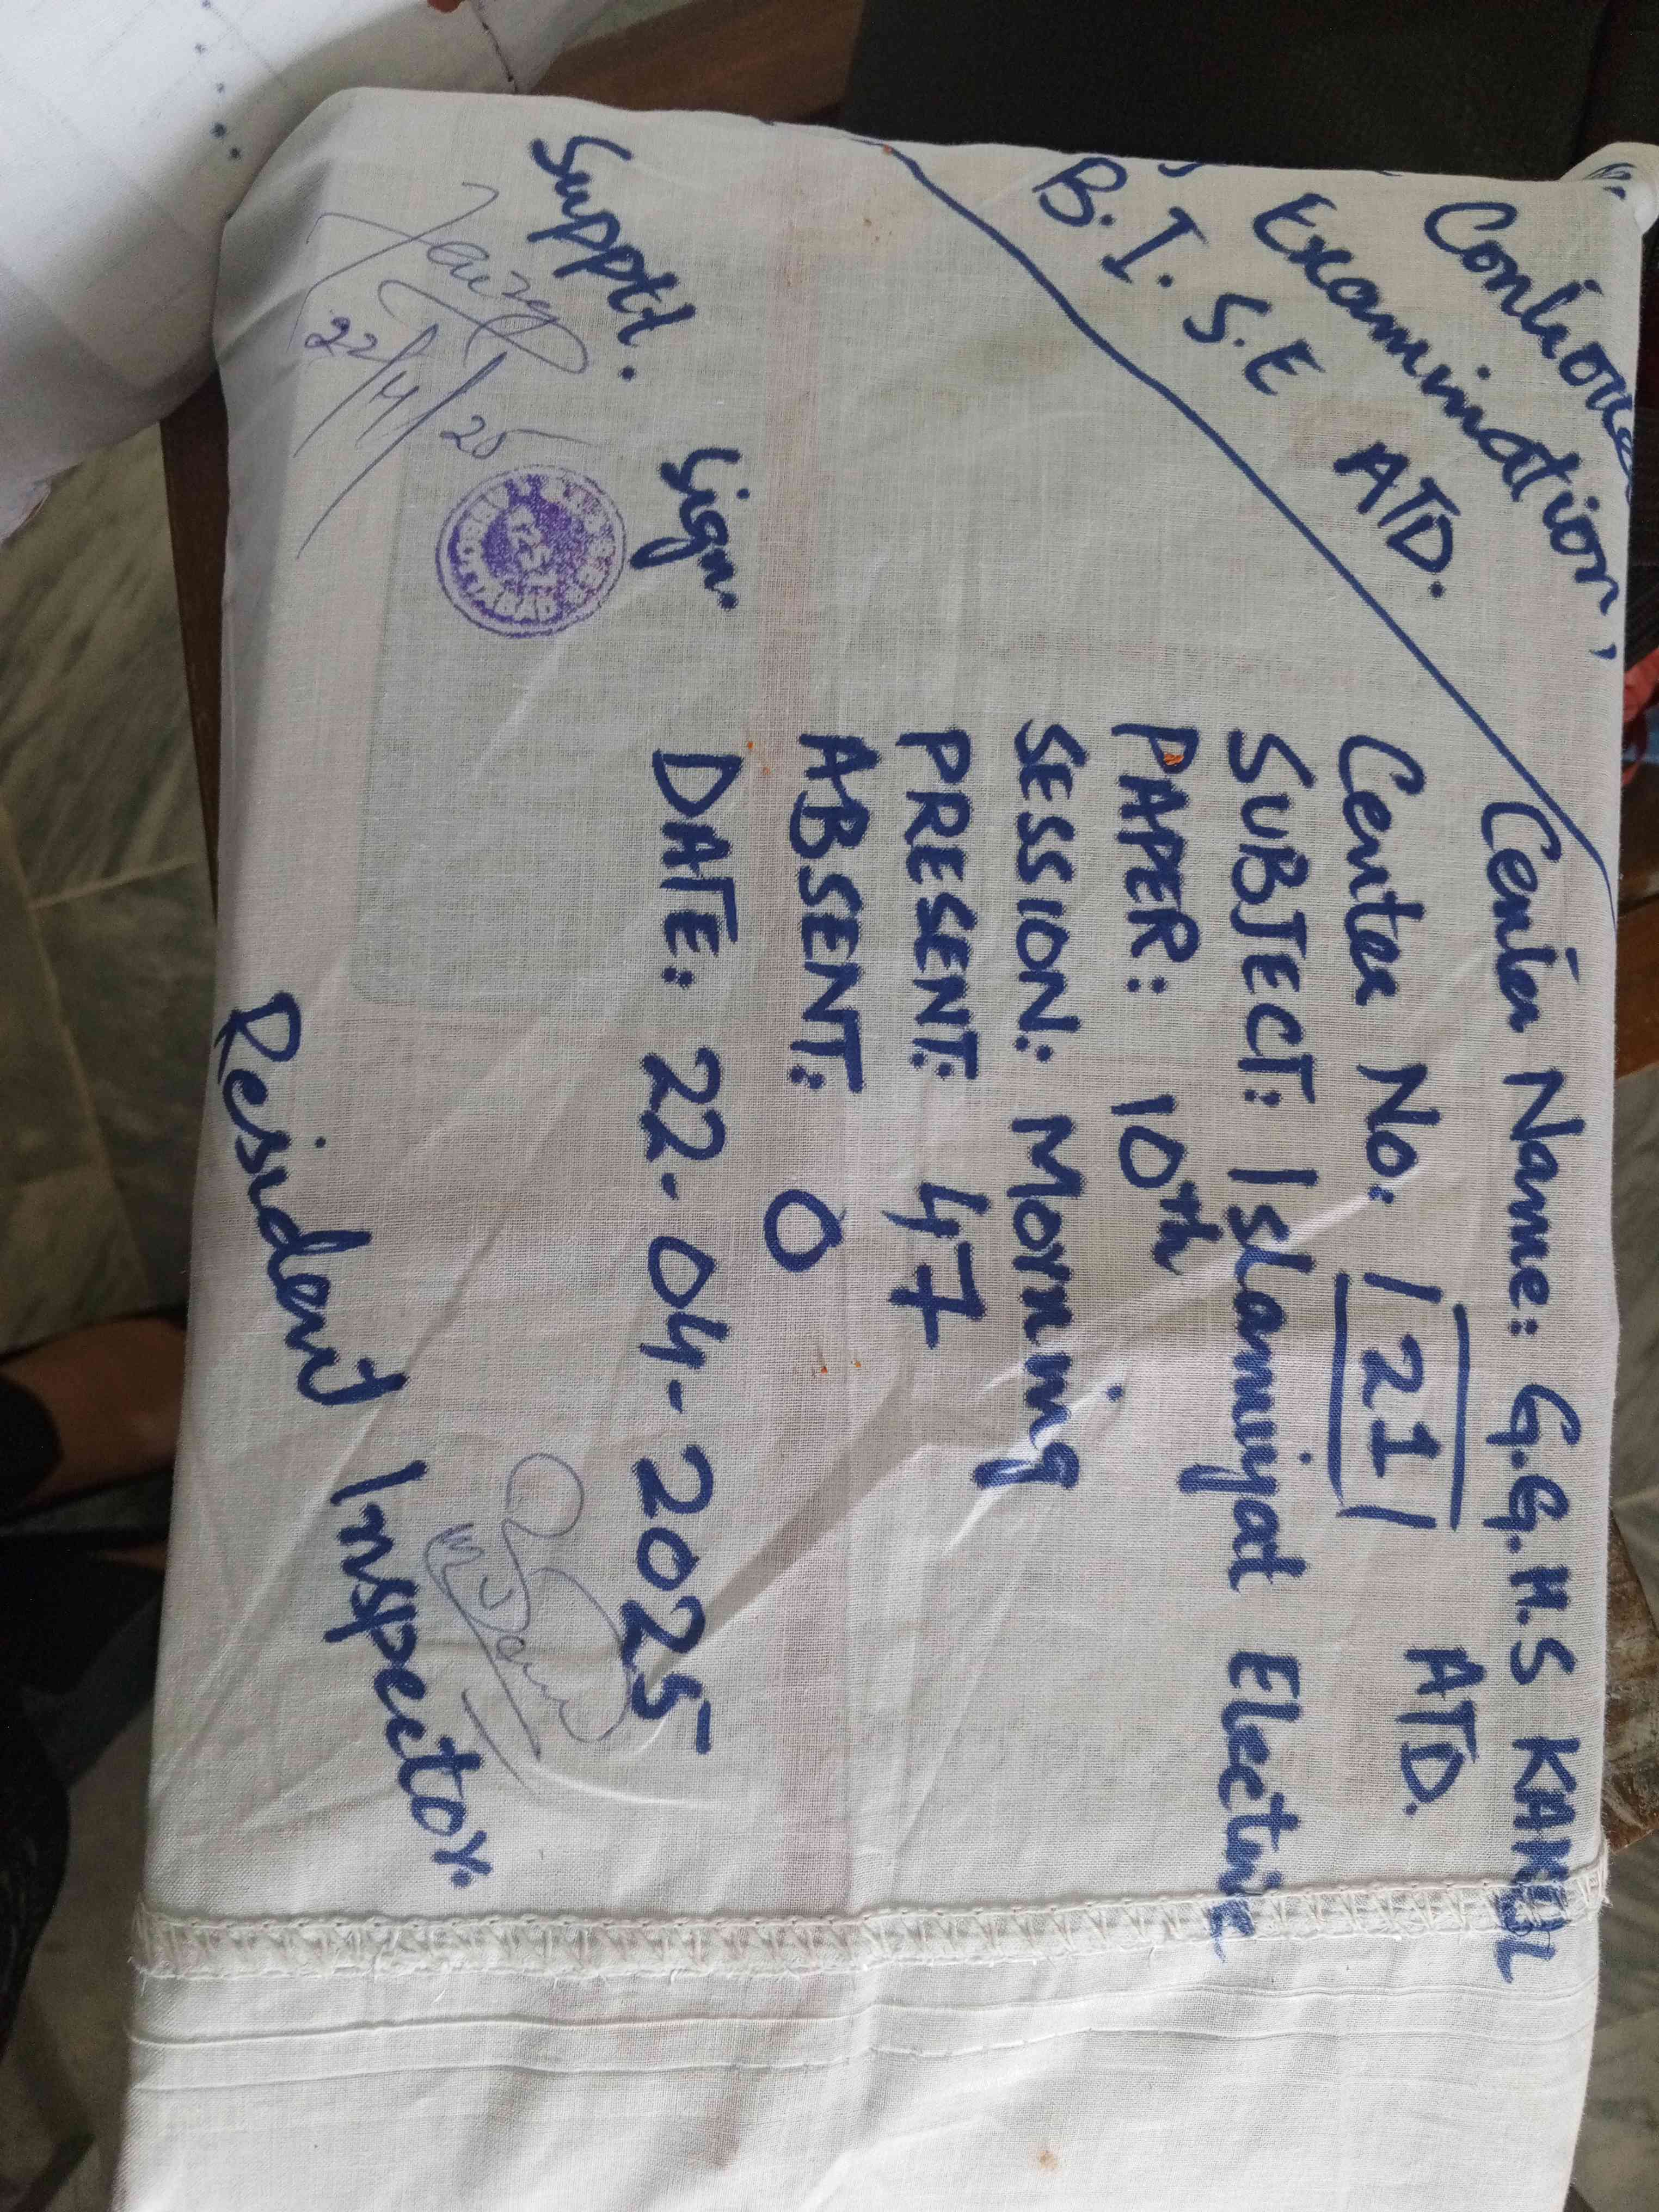 Controller
Examination,
B.I.S.E ATD.
Center Name: G.G.H.S KAKUL
ATD.
Center No: 121
SUBJECT: Islamiyat Elective
PAPER: 10th
SESSION: Morning
PRESENT: 47
ABSENT: 0
DATE: 22-04-2025
Suppt. Sign.
22/4/25
Resident Inspector.